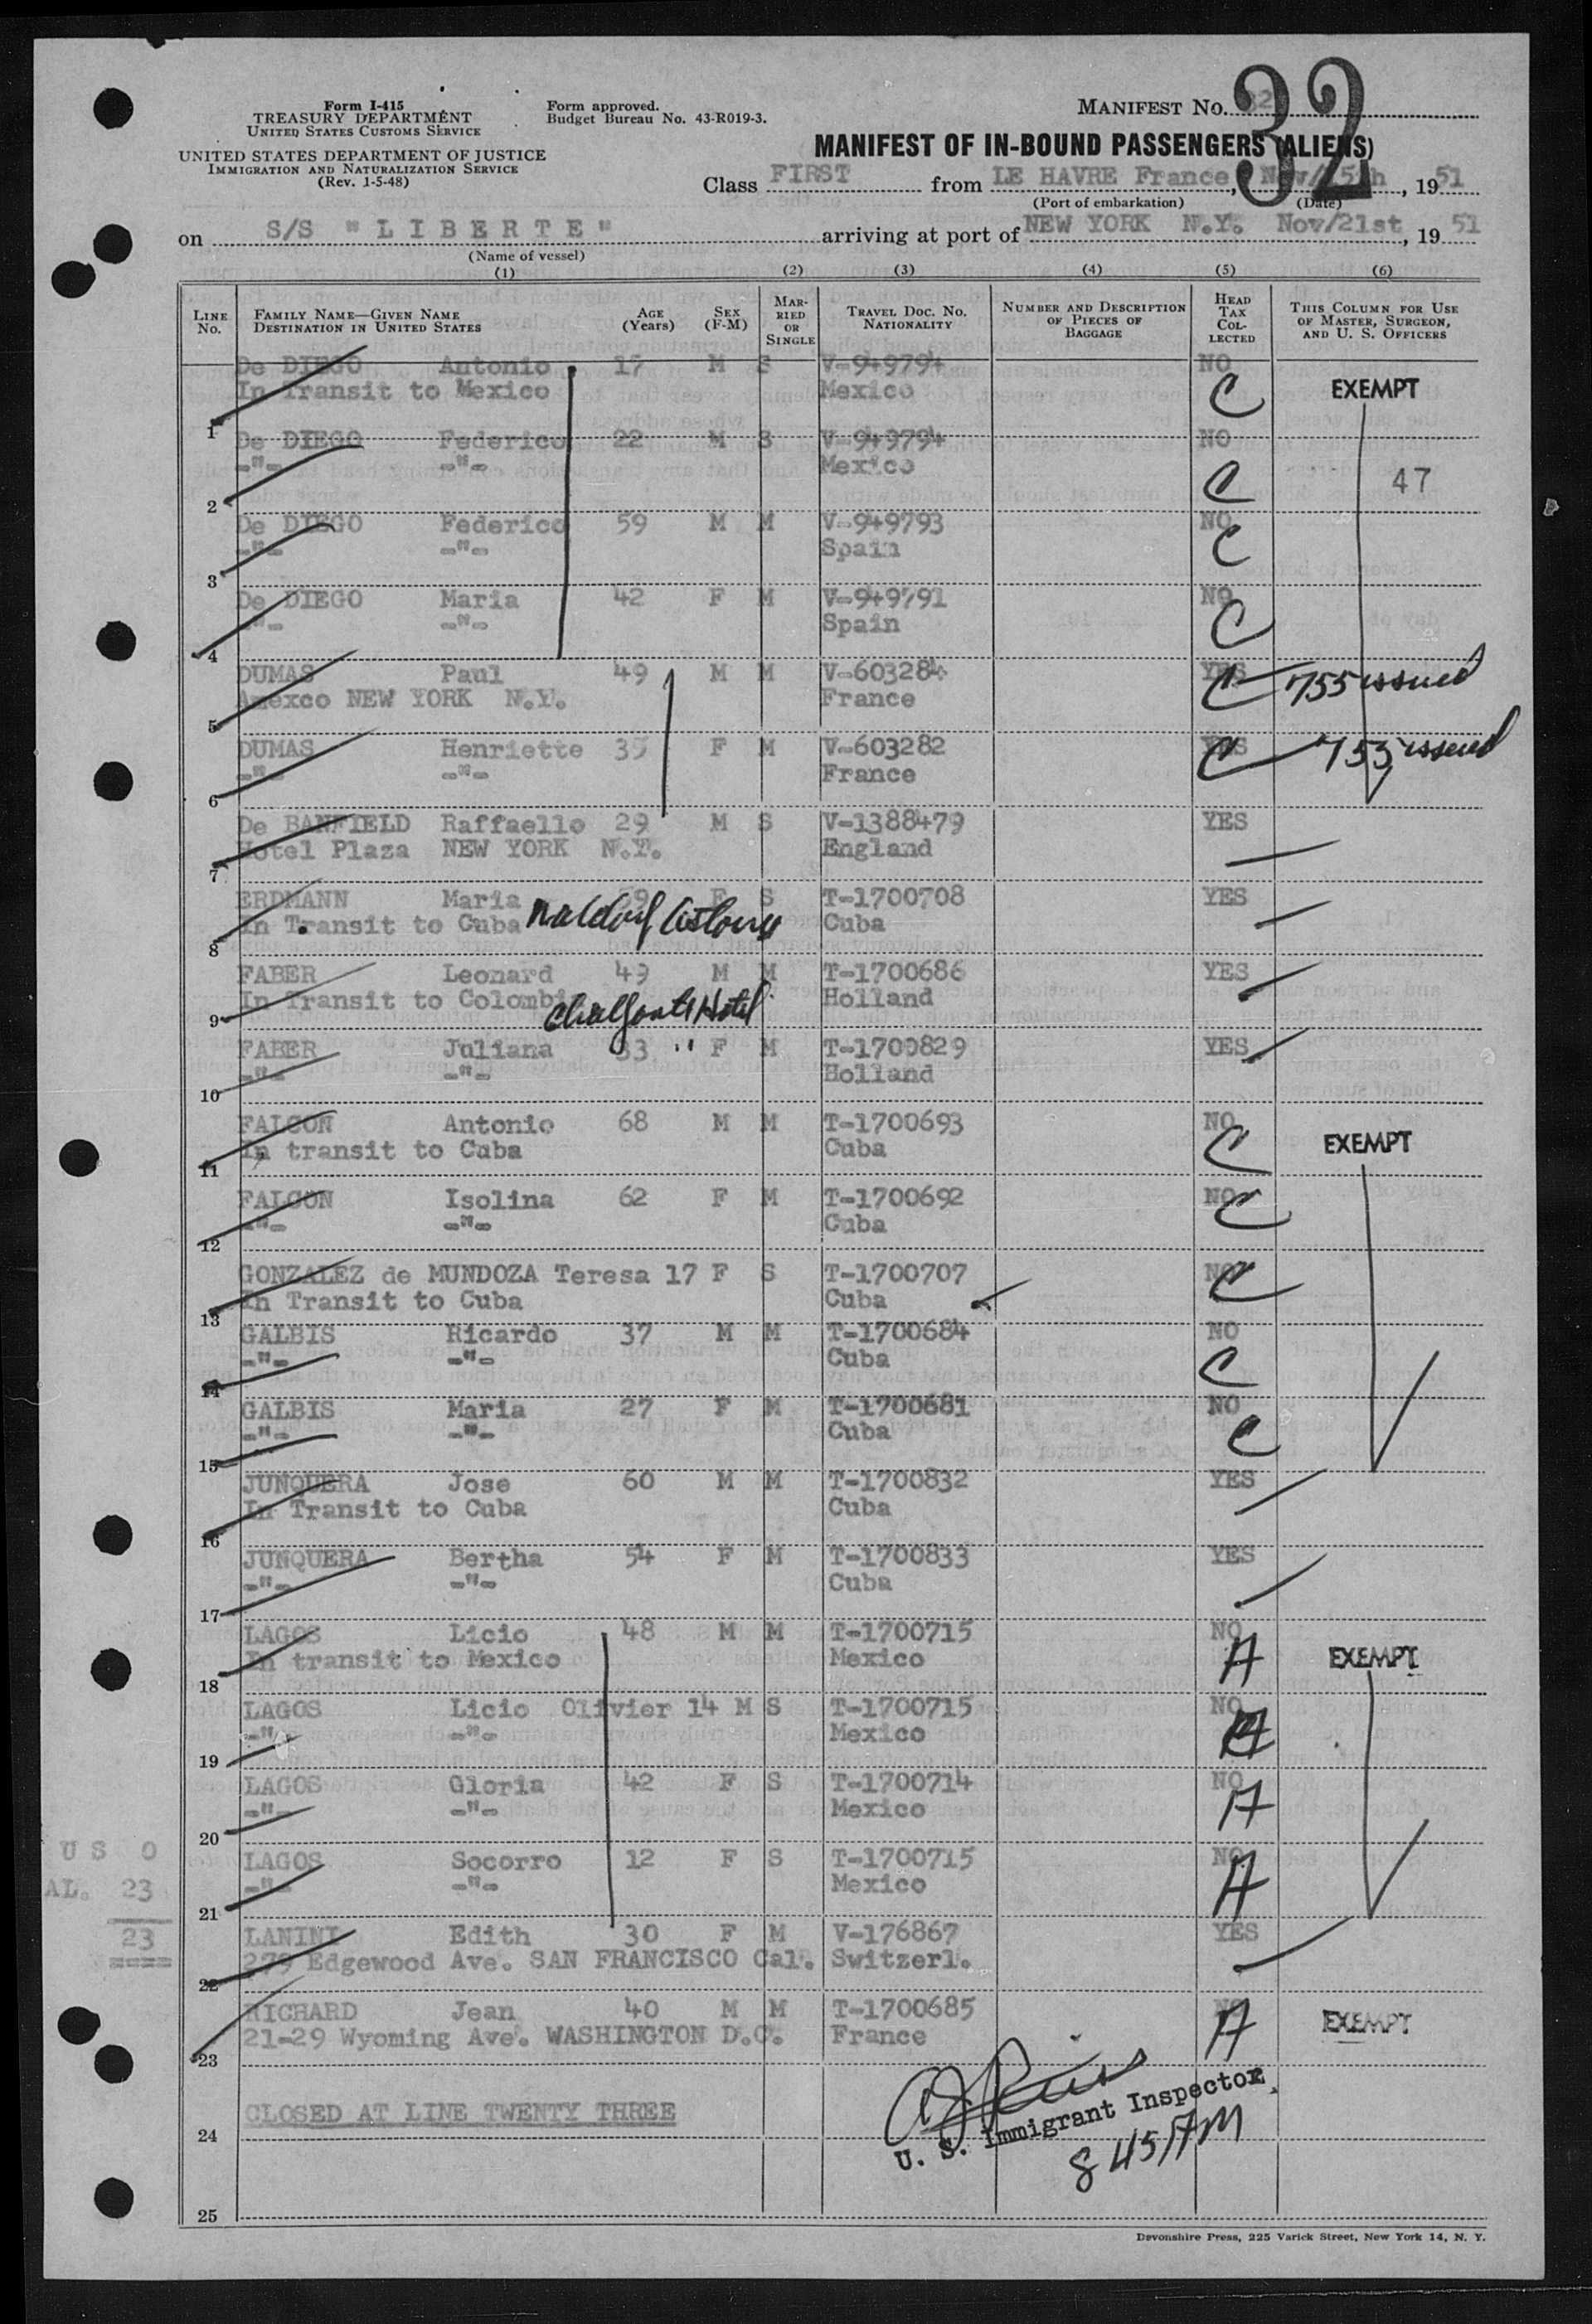 Form I-415
TREASURY DEPARTMENT
UNITED STATES CUSTOMS SERVICE
UNITED STATES DEPARTMENT OF JUSTICE
IMMIGRATION AND NATURALIZATION SERVICE
(Rev. 1-5-48)
Form approved.
Budget Bureau No. 43-R019-3.
MANIFEST NO. 32
MANIFEST OF IN-BOUND PASSENGERS (ALIENS)
Class FIRST from LE HAVRE France, Nov/15th, 1951
(Port of embarkation) (Date)
on S/S "LIBERTE" arriving at port of NEW YORK N.Y. Nov/21st, 1951
(Name of vessel)
(1) (2) (3) (4) (5) (6)
LINE No. FAMILY NAME—GIVEN NAME DESTINATION IN UNITED STATES AGE (Years) SEX (F-M) MARRIED OR SINGLE TRAVEL DOC. NO. NATIONALITY NUMBER AND DESCRIPTION OF PIECES OF BAGGAGE HEAD TAX COLLECTED THIS COLUMN FOR USE OF MASTER, SURGEON, AND U. S. OFFICERS
De DIEGO Antonio 17 M S V-949794 NO
1 In Transit to Mexico Mexico C EXEMPT
De DIEGO Federico 22 M S V-949794 NO
2 -"- -"- Mexico C 47
De DIEGO Federico 59 M M V-949793 NO
3 -"- -"- Spain C
De DIEGO Maria 42 F M V-949791 NO
4 -"- -"- Spain C
DUMAS Paul 49 M M V-603284 YES
5 Amexco NEW YORK N.Y. France C 755 issued
DUMAS Henriette 35 F M V-603282 YES
6 -"- -"- France C 755 issued
De BANFIELD Raffaello 29 M S V-1388479 YES
7 Hotel Plaza NEW YORK N.Y. England
ERDMANN Maria F S T-1700708 YES
8 In Transit to Cuba Waldorf Astoria Cuba
FABER Leonard 49 M M T-1700686 YES
9 In Transit to Colombia Chalfonte Hotel Holland
FABER Juliana 33 " F M T-1700829 YES
10 -"- -"- Holland
FALCON Antonio 68 M M T-1700693 NO
11 In transit to Cuba Cuba C EXEMPT
FALCON Isolina 62 F M T-1700692 NO
12 -"- -"- Cuba C
GONZALEZ de MUNDOZA Teresa 17 F S T-1700707 NO
13 In Transit to Cuba Cuba C
GALBIS Ricardo 37 M M T-1700684 NO
14 -"- -"- Cuba C
GALBIS Maria 27 F M T-1700681 NO
15 -"- -"- Cuba C
JUNQUERA Jose 60 M M T-1700832 YES
16 In Transit to Cuba Cuba
JUNQUERA Bertha 54 F M T-1700833 YES
17 -"- -"- Cuba
LAGOS Licio 48 M M T-1700715 NO
18 In transit to Mexico Mexico A EXEMPT
LAGOS Licio Olivier 14 M S T-1700715 NO
19 -"- -"- Mexico A
LAGOS Gloria 42 F S T-1700714 NO
20 -"- -"- Mexico A
LAGOS Socorro 12 F S T-1700715 NO
21 -"- -"- Mexico A
LANINI Edith 30 F M V-176867 YES
22 279 Edgewood Ave. SAN FRANCISCO Cal. Switzerl.
RICHARD Jean 40 M M T-1700685 NO
23 21-29 Wyoming Ave. WASHINGTON D.C. France A EXEMPT
US 0
AL. 23
23
====
24 CLOSED AT LINE TWENTY THREE
U. S. Immigrant Inspector
8 45 AM
25
Devonshire Press, 225 Varick Street, New York 14, N. Y.